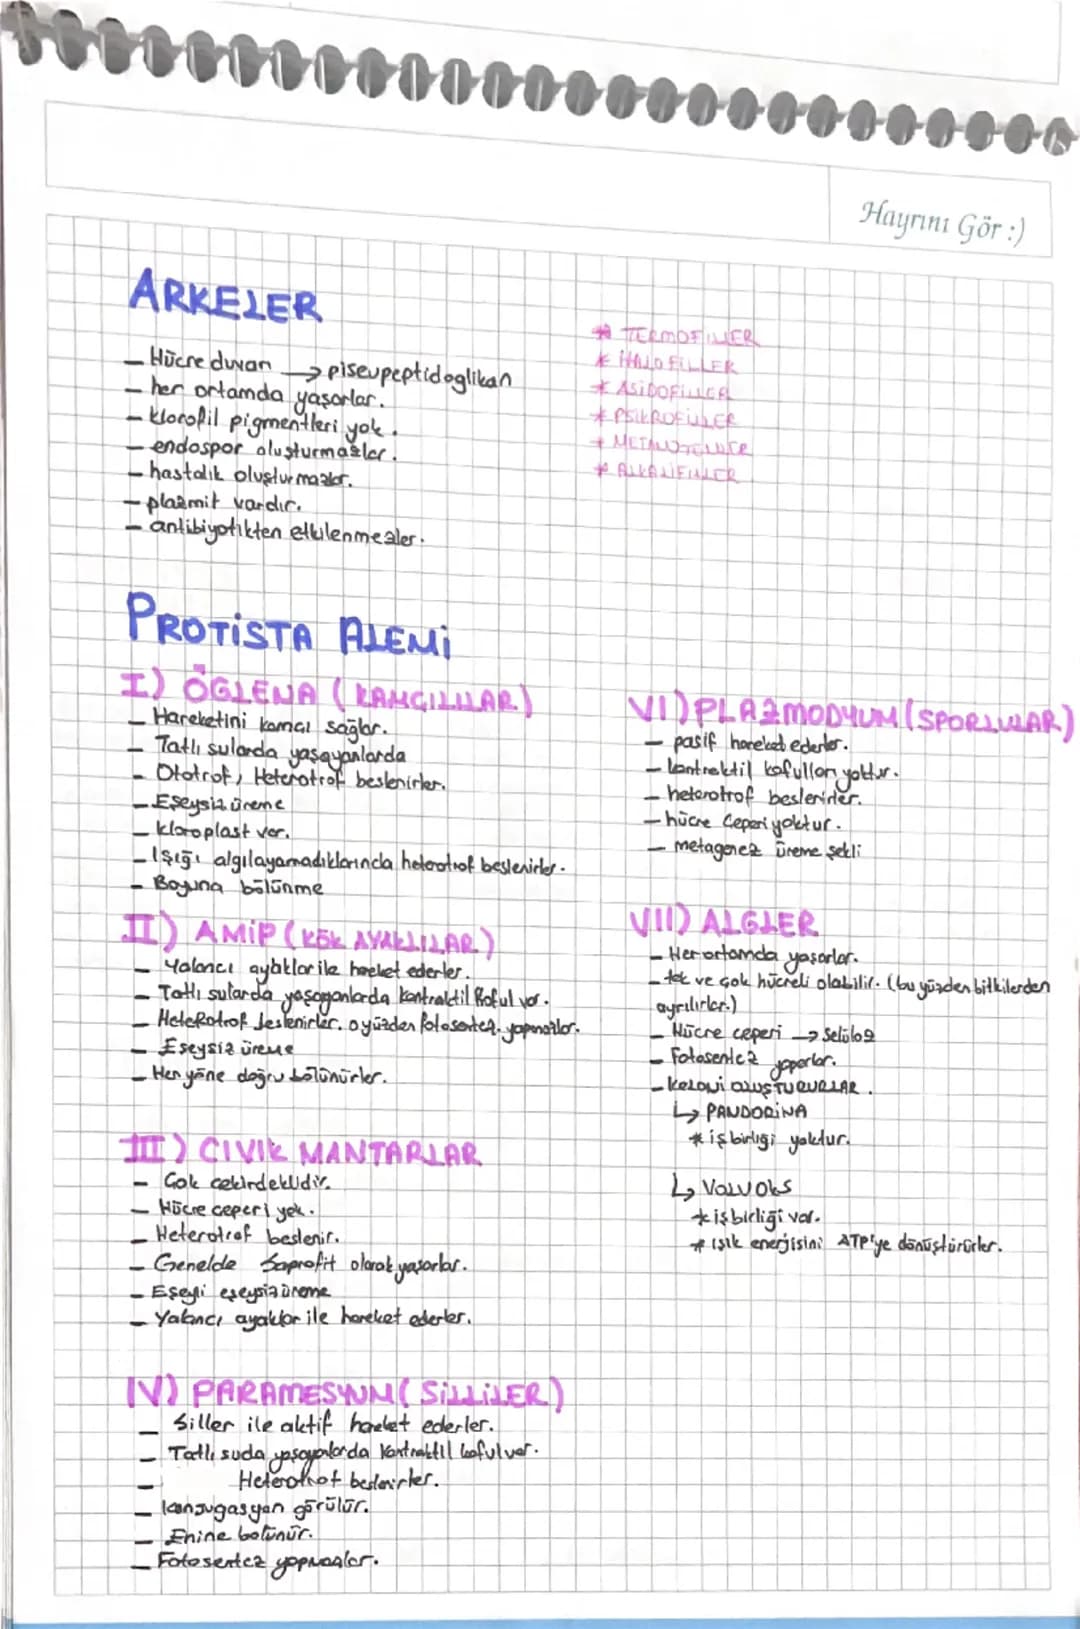 Hayrını Gör :)
ARKELER
- Hücre duvarı → piseupeptidoglikan
- her ortamda yaşarlar.
- klorofil pigmentleri yok.
- endospor oluşturmazlar.
- hastalık oluşturmazlar.
- plazmit vardır.
- antibiyotikten etkilenmezler.
* TERMOFİLLER
* HALOFİLLER
* ASİDOFİLLER
* PSİKROFİLLER
* METANOJENLER
* ALKALİFİLLER
PROTİSTA ALEMİ
I) ÖGLENA (KAMÇILILAR)
- Hareketini kamçı sağlar.
- Tatlı sularda yaşayanlarda
- Ototrof, Heterotrof beslenirler.
- Eşeysiz üreme
- kloroplast var.
- Işığı algılayamadıklarında heterotrof beslenirler.
- Boyuna bölünme
II) AMİP (KÖK AYAKLILAR)
- Yalancı ayaklar ile hareket ederler.
- Tatlı sularda yaşayanlarda kontraktil koful var.
- Heterotrof beslenirler. o yüzden fotosentez yapmazlar.
- Eşeysiz üreme
- Her yöne doğru bölünürler.
III) CIVIK MANTARLAR
- Çok çekirdeklidir.
- Hücre çeperi yok.
- Heterotrof beslenir.
- Genelde Saprofit olarak yaşarlar.
- Eşeyli eşeysiz üreme
- Yalancı ayaklar ile hareket ederler.
IV) PARAMESYUM (SİLLİLER)
- Siller ile aktif hareket ederler.
- Tatlı suda yaşayanlarda kontraktil koful var.
- Heterotrof beslenirler.
- konjugasyon görülür.
- Enine bölünür.
- Fotosentez yapmazlar.
VI) PLAZMODYUM (SPORLULAR)
- pasif hareket ederler.
- kontraktil kofulları yoktur.
- heterotrof beslenirler.
- hücre çeperi yoktur.
- metagenez üreme şekli
VII) ALGLER
- Her ortamda yaşarlar.
- tek ve çok hücreli olabilir. (bu yüzden bitkilerden
ayrılırlar.)
- Hücre çeperi → Selüloz
- Fotosentez yaparlar.
- KOLONİ OLUŞTURURLAR.
↳ PANDORİNA
* işbirliği yoktur.
↳ VOLVOKS
* işbirliği var.
* ışık enerjisini ATP'ye dönüştürürler.